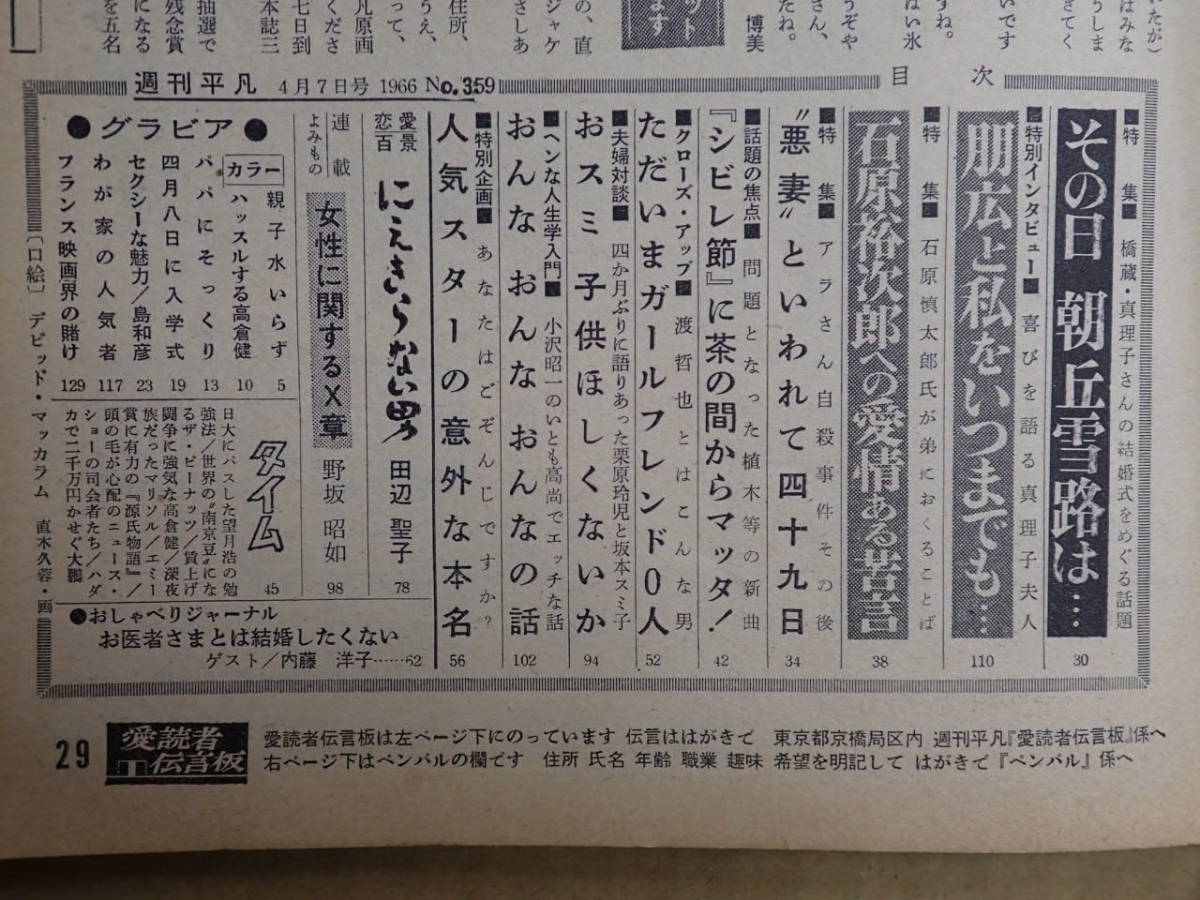 いたが)
はみな
うしま
きてく
いです
すね。
はい氷
さん、
うぞや
たね。
博美
ット
ます
の、直
ジャケ
さしあ
住所、
うえ、
って、
くださ
凡原画
七日到
本誌三
抽選で
残念賞
になる
を五名
週刊平凡 4月7日号 1966 No.359
目次
■特集■ 橋蔵・真理子さんの結婚式をめぐる話題
その日 朝丘雪路は… 30
■特別インタビュー■ 喜びを語る真理子夫人
朋広と私をいつまでも… 110
■特集■ 石原慎太郎氏が弟におくることば
石原裕次郎への愛情ある苦言 38
■特集■ アラさん自殺事件その後
“悪妻”といわれて四十九日 34
■話題の焦点■ 問題となった植木等の新曲
『シビレ節』に茶の間からマッタ! 42
■クローズ・アップ■ 渡哲也とはこんな男
ただいまガールフレンド0人 52
■夫婦対談■ 四か月ぶりに語りあった栗原玲児と坂本スミ子
おスミ 子供ほしくないか 94
■ヘンな人生学入門■ 小沢昭一のいとも高尚でエッチな話
おんな おんな おんなの話 102
■特別企画■ あなたはどぞんじですか?
人気スターの意外な本名 56
愛景
恋百
にえきらない男 田辺聖子 78
連載
よみもの
女性に関するX章 野坂昭如 98
●グラビア●
カラー
親子水いらず 5
ハッスルする高倉健 10
パパにそっくり 13
四月八日に入学式 19
セクシーな魅力/島和彦 23
わが家の人気者 117
フランス映画界の賭け 129
〔口絵〕 デビッド・マッカラム 直木久蓉・画
タイム 45
日大にパスした望月浩の勉
強法/世界の“南京豆”にな
るザ・ピーナッツ/賃上げ
闘争に強気な高倉健/深夜
族だったマリソル/エミー
賞に有力の『源氏物語』/
頭の毛が心配のニュース・
ショーの司会者たち/ハダ
カで二千万円かせぐ大鵬
●おしゃべりジャーナル
お医者さまとは結婚したくない
ゲスト/内藤 洋子……62
29
愛読者
伝言板
愛読者伝言板は左ページ下にのっています 伝言ははがきで 東京都京橋局区内 週刊平凡『愛読者伝言板』係へ
右ページ下はペンパルの欄です 住所 氏名 年齢 職業 趣味 希望を明記して はがきで『ペンパル』係へ